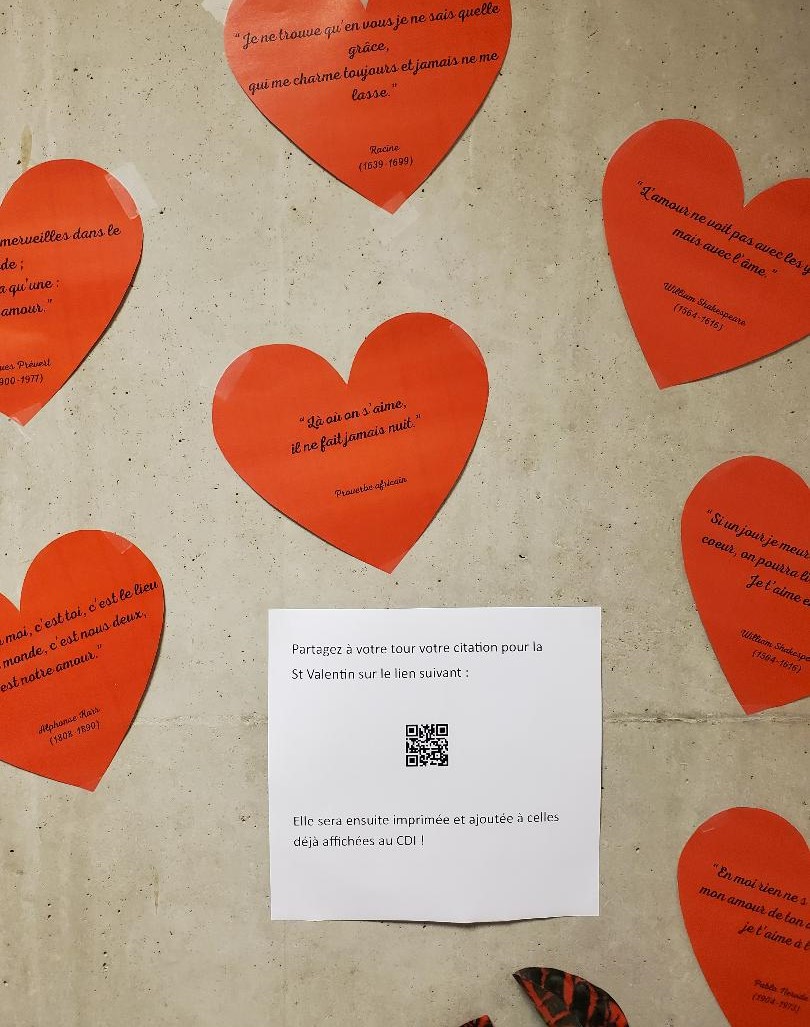 “Je ne trouve qu'en vous je ne sais quelle
grâce,
qui me charme toujours et jamais ne me
lasse.”
Racine
(1639-1699)
merveilles dans le
qu'une :
amour.”
Prévert
1977)
“L'amour ne voit pas avec les
mais avec l'âme.”
William Shakespeare
(1564-1616)
“Là où on s'aime,
il ne fait jamais nuit.”
Proverbe africain
moi, c'est toi, c'est le lieu
monde, c'est nous deux,
est notre amour.”
Alphonse Karr
(1808-1890)
“Si un jour je
coeur, on pourra
Je t'aime
William
(1564-1616)
Partagez à votre tour votre citation pour la
St Valentin sur le lien suivant :
Elle sera ensuite imprimée et ajoutée à celles
déjà affichées au CDI !
“En moi rien ne
mon amour de ton
je t'aime à
Pablo Neruda
(1904-1973)